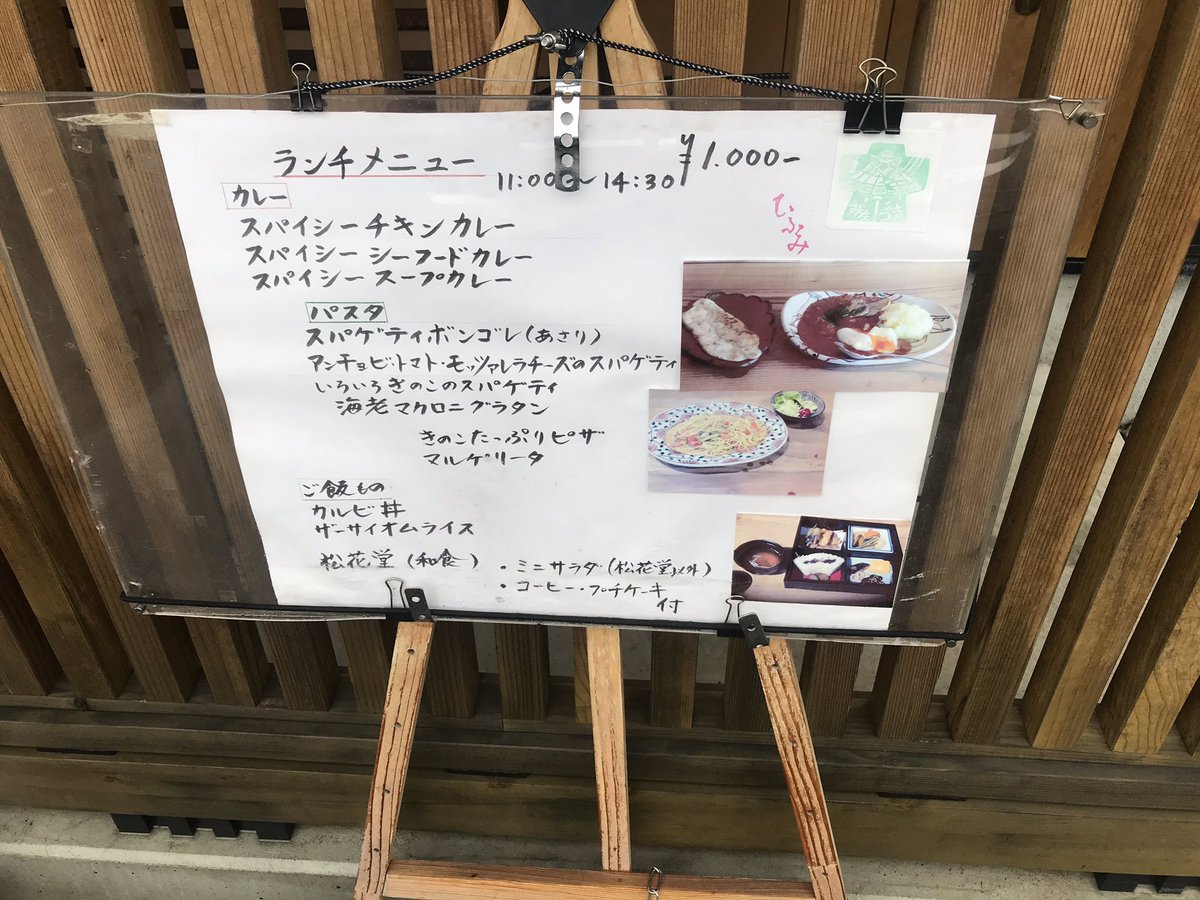 ランチメニュー
11:00～14:30
¥1.000-
ひふみ
カレー
スパイシーチキンカレー
スパイシーシーフードカレー
スパイシースープカレー
パスタ
スパゲティボンゴレ(あさり)
アンチョビ・トマト・モッツァレラチーズのスパゲティ
いろいろきのこのスパゲティ
海老マクロニグラタン
きのこたっぷりピザ
マルゲリータ
ご飯もの
カルビ丼
ザーサイオムライス
松花堂(和食)
・ミニサラダ(松花堂以外)
・コーヒー・プチケーキ
付